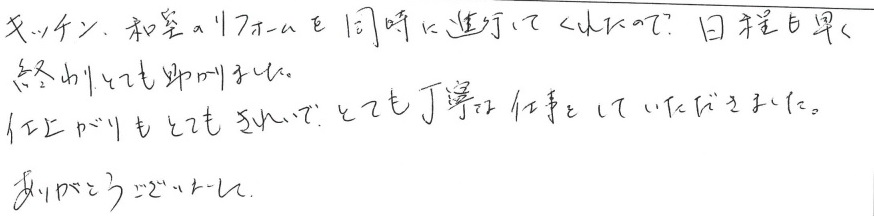 キッチン、和室のリフォームを同時に進行してくれたので、日程も早く
終わりとても助かりました。
仕上がりもとてもきれいで、とても丁寧な仕事をしていただきました。
ありがとうございました。